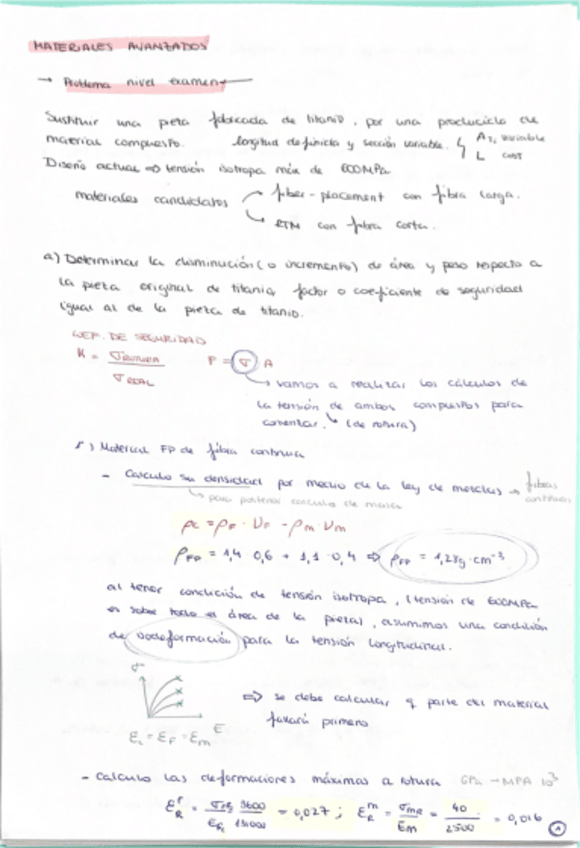 MATERIALES AVANZADOS
→ Problema nivel examen
Sustituir una pieza fabricada de titanio, por una producida de
material compuesto. longitud definida y sección variable. { AT, variable
L cost
Diseño actual ⇒ tensión isotropa máx de 600MPa
materiales candidatos fiber-placement con fibra larga.
RTM con fibra corta.
a) Determinar la disminución (o incremento) de área y peso respecto a
la pieza original de titanio, factor o coeficiente de seguridad
igual al de la pieza de titanio.
COEF. DE SEGURIDAD
K = σROTURA / σREAL P = σ A
→ vamos a realizar los cálculos de
la tensión de ambos compuestos para
comentar. ↳ (de rotura)
1) Material FP de fibra continua
- Calculo su densidad por medio de la ley de mezclas → fibras
continuas
↳ para posterior calculo de masa
ρc = ρF · VF - ρm Vm
ρFP = 1,4 · 0,6 + 1,1 · 0,4 ⇒ ρFP = 1,28g·cm⁻³
al tener condición de tensión isotropa, (tensión de 600MPa
es sobre todo el área de la pieza), asumimos una condición
de isodeformación para la tensión longitudinal.
σ
⇒ se debe calcular q parte del material
fallará primero
ε
εc = εF = εm
- Calculo las deformaciones máximas a rotura GPa → MPA 10³
= 3600 / = 0,027 ; εRm = σmR / Em = 40 / 2500 = 0,016
1